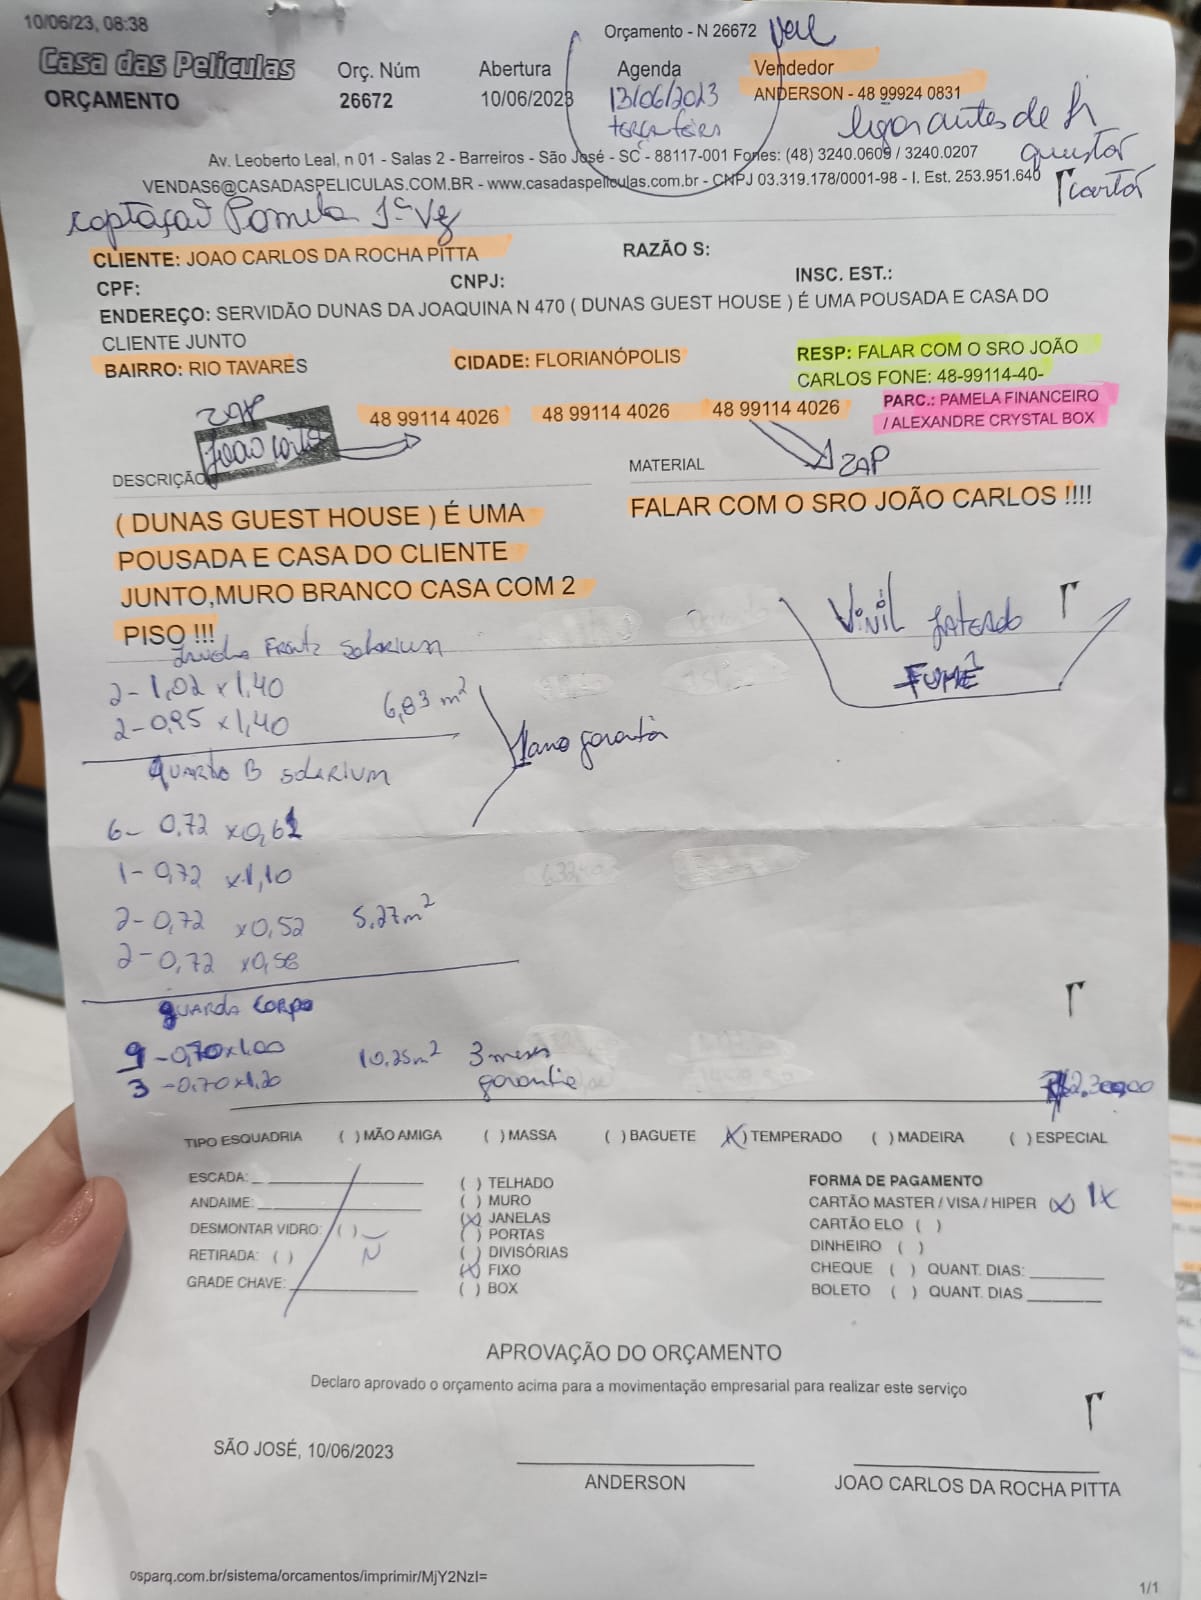 10/06/23, 08:38
Orçamento - N 26672
Casa das Películas
ORÇAMENTO
Orç. Núm
26672
Abertura
10/06/2023
Agenda
13/06/2023
terça feira
Vendedor
ANDERSON - 48 99924 0831
ligar antes de
Av. Leoberto Leal, n 01 - Salas 2 - Barreiros - São José - SC - 88117-001 Fones: (48) 3240.0609 / 3240.0207
VENDAS6@CASADASPELICULAS.COM.BR - www.casadaspeliculas.com.br - CNPJ 03.319.178/0001-98 - I. Est. 253.951.640
captação Pamela 1ª Vez
CLIENTE: JOAO CARLOS DA ROCHA PITTA
RAZÃO S:
CPF:
CNPJ:
INSC. EST.:
ENDEREÇO: SERVIDÃO DUNAS DA JOAQUINA N 470 ( DUNAS GUEST HOUSE ) É UMA POUSADA E CASA DO
CLIENTE JUNTO
BAIRRO: RIO TAVARES
CIDADE: FLORIANÓPOLIS
RESP: FALAR COM O SRO JOÃO
CARLOS FONE: 48-99114-40-
PARC.: PAMELA FINANCEIRO
/ ALEXANDRE CRYSTAL BOX
ZAP
48 99114 4026
48 99114 4026
48 99114 4026
ZAP
DESCRIÇÃO
MATERIAL
( DUNAS GUEST HOUSE ) É UMA
POUSADA E CASA DO CLIENTE
JUNTO,MURO BRANCO CASA COM 2
PISO !!!
FALAR COM O SRO JOÃO CARLOS !!!!
Vinil Jateado
FUMÊ
Janela Frente Solarium
2 - 1,02 x 1,40
2 - 0,95 x 1,40
6,83 m²
1 ano garantia
QUARTO B SOLARIUM
6 - 0,72 x 0,61
1 - 0,72 x 1,10
2 - 0,72 x 0,52
2 - 0,72 x 0,56
5,27 m²
guarda corpo
9 - 0,70 x 1,00
3 - 0,70 x 1,20
10,25 m²
3 meses
garantia
TIPO ESQUADRIA
( ) MÃO AMIGA
( ) MASSA
( ) BAGUETE
(X) TEMPERADO
( ) MADEIRA
( ) ESPECIAL
ESCADA:
ANDAIME:
DESMONTAR VIDRO: ( )
RETIRADA: ( )
N
GRADE CHAVE:
( ) TELHADO
( ) MURO
(X) JANELAS
( ) PORTAS
( ) DIVISÓRIAS
(X) FIXO
( ) BOX
FORMA DE PAGAMENTO
CARTÃO MASTER / VISA / HIPER (X) 1x
CARTÃO ELO ( )
DINHEIRO ( )
CHEQUE ( ) QUANT. DIAS:
BOLETO ( ) QUANT. DIAS
APROVAÇÃO DO ORÇAMENTO
Declaro aprovado o orçamento acima para a movimentação empresarial para realizar este serviço
SÃO JOSÉ, 10/06/2023
ANDERSON
JOAO CARLOS DA ROCHA PITTA
osparq.com.br/sistema/orcamentos/imprimir/MjY2NzI=
1/1